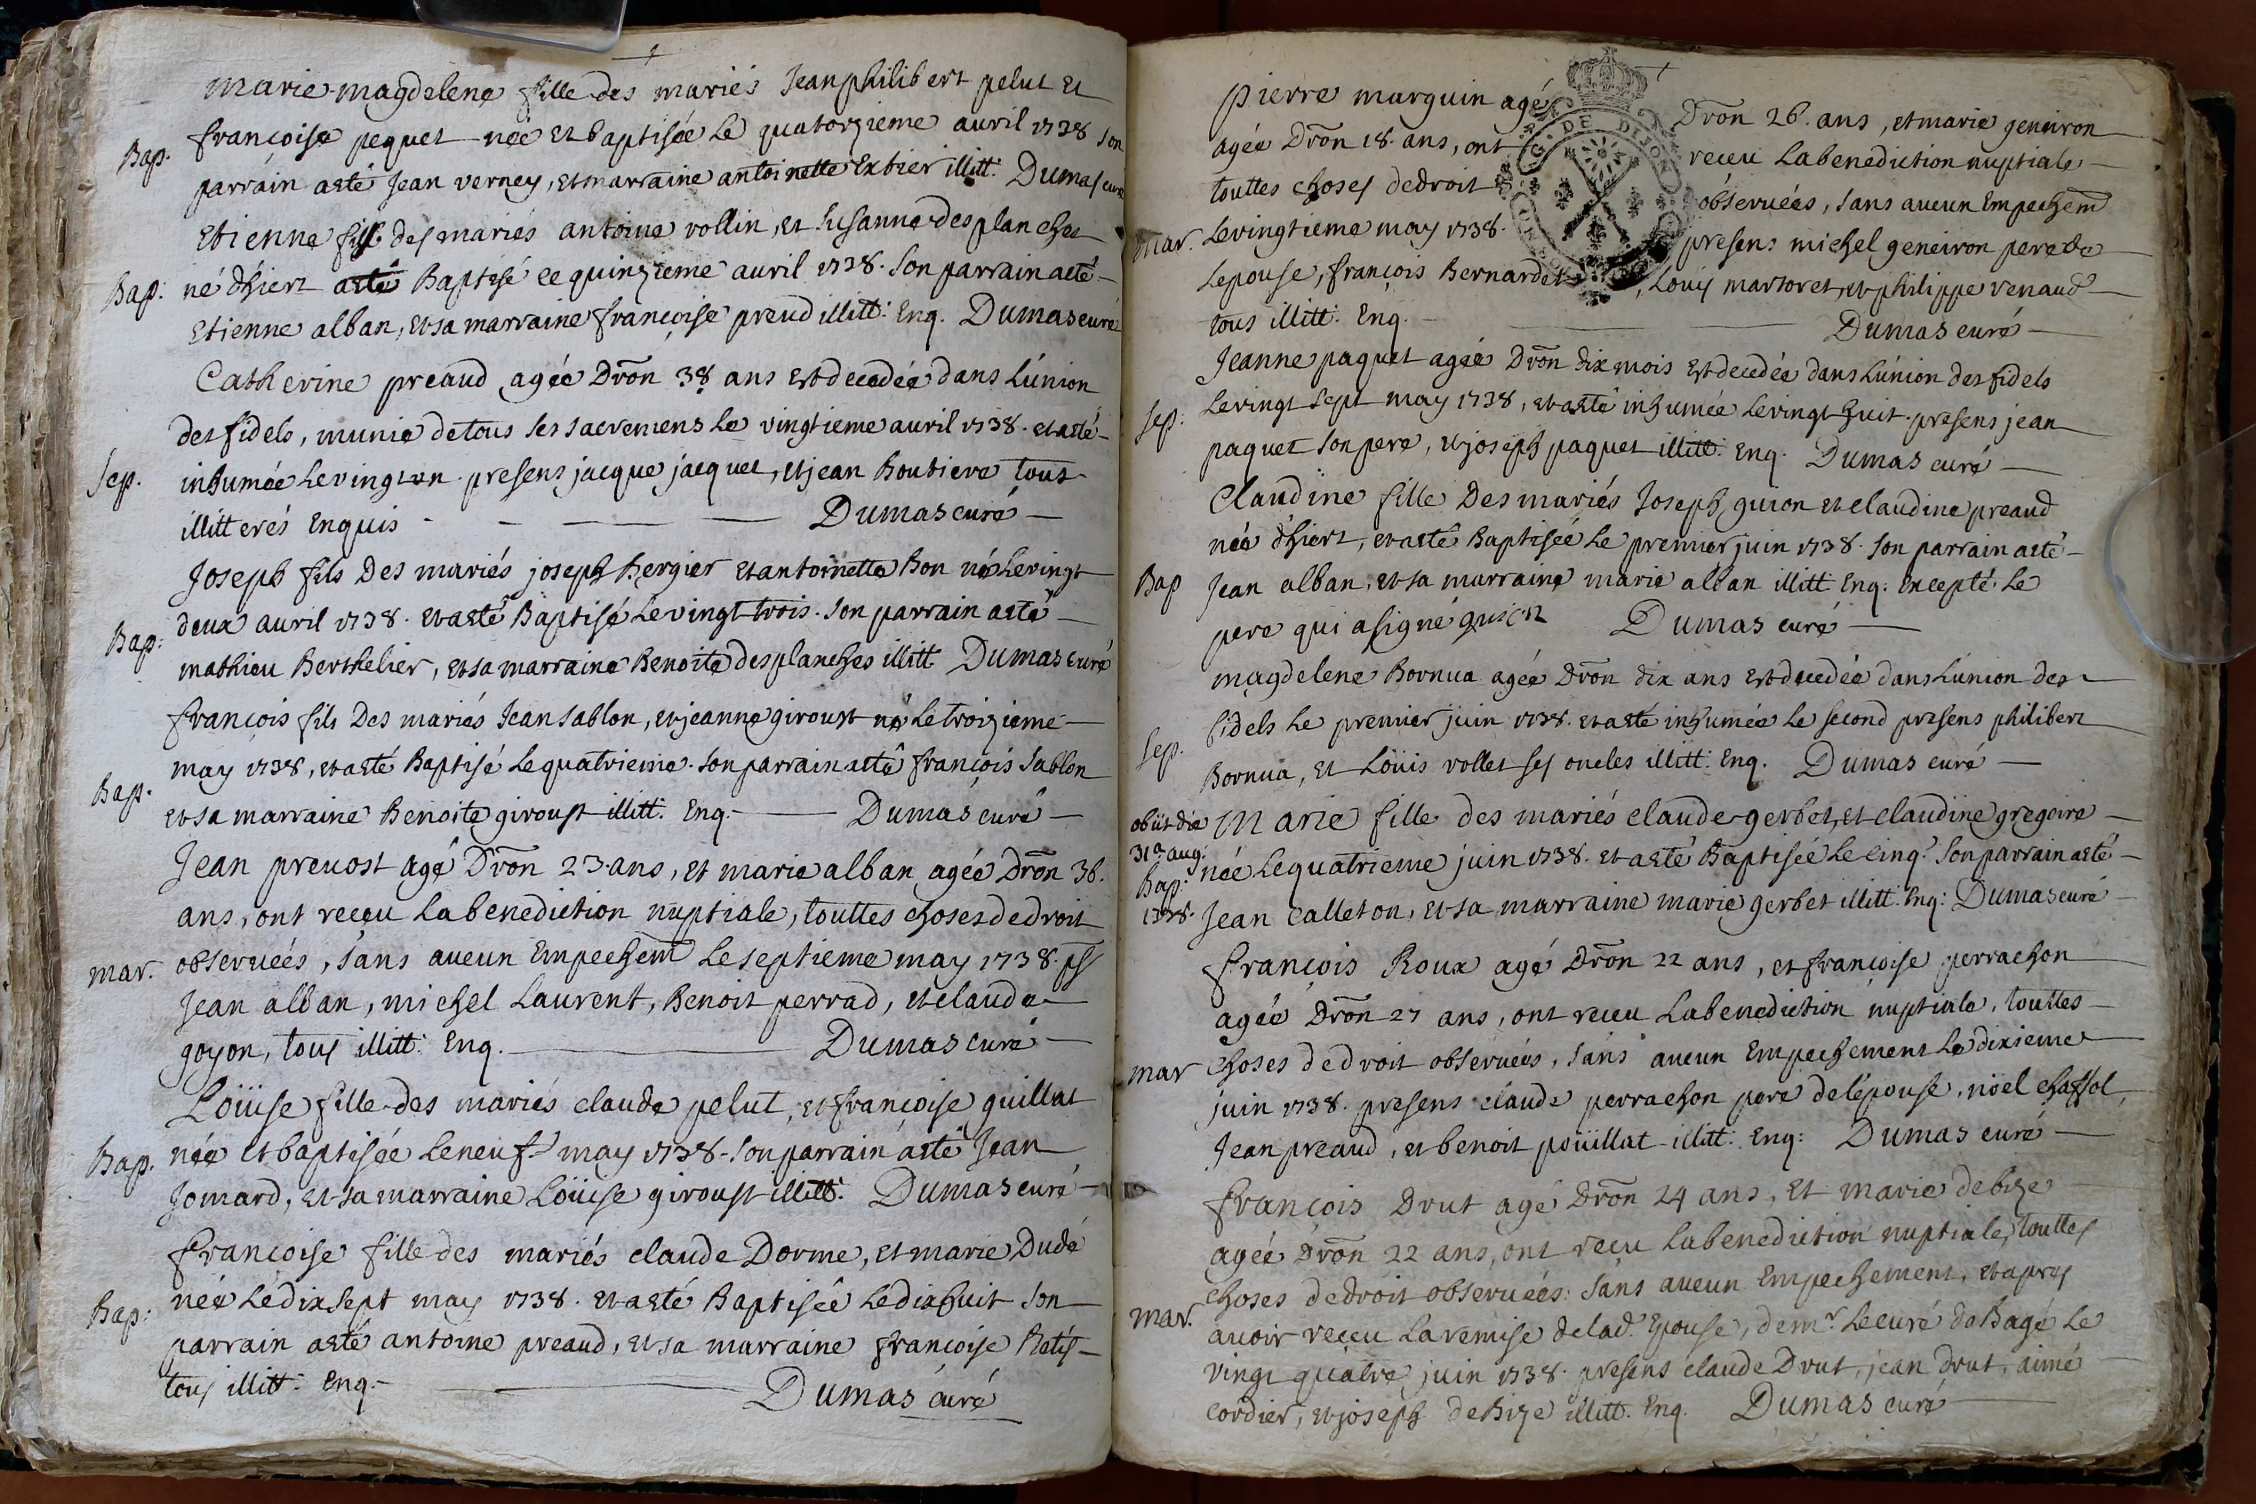 marie magdelene fille des mariés Jean philibert pelut et
Bap. françoise pequet née et baptisée le quatorzieme avril 1738 son
parrain a eté Jean verney, et marraine antoinette Extier illitt: Dumas curé
Etienne fils des mariés antoine vollin, et susanne desplanches
Bap: né d'hiert a eté Baptisé ce quinzieme avril 1738. son parrain a eté
Etienne alban, et sa marraine françoise preud illitt: Enq. Dumas curé
Catherine preaud agée Dron 38 ans est decedée dans l'union
des fidels, munie de tous ses sacremens le vingtieme avril 1738. et a eté
Sep. inhumée le vingt un. presens jacque jacquet, et jean Boutiere tous
illitterés Enquis Dumas curé
Joseph fils Des mariés joseph Bergier et antoinette Bon né le vingt
deux avril 1738. et a eté Baptisé le vingt trois. son parrain a eté
Bap: mathieu Berthelier, et sa marraine Benoite desplanches illitt Dumas curé
françois fils Des mariés Jean sablon, et jeanne giroust né le troizieme
may 1738, et a eté Baptisé le quatrieme. son parrain a eté françois sablon
Bap. et sa marraine Benoite giroust illitt: Enq. Dumas curé
Jean prevost agé Dron 23. ans, et marie alban agée Dron 36.
ans, ont receu la benediction nuptiale, touttes choses de droit
mar. observées, sans aucun Empechem̃ le septieme may 1738. ps
Jean alban, michel Laurent, Benoit perrad, et claude
goyon, tous illitt: Enq. Dumas curé
Loüise fille des mariés claude pelut, et françoise guillat
Bap. née et baptisée le neuf may 1738. son parrain a eté Jean
Jomard, et sa marraine Loüise giroust illitt: Dumas curé
françoise fille des mariés claude Dorme, et marie Dudé
Bap: née le dix sept may 1738. et a eté Baptisée le dix huit son
parrain a eté antoine preaud, et sa marraine françoise Retis
tous illitt: Enq. Dumas curé
pierre marguin agé Dron 26. ans, et marie geneiron
agée Dron 18. ans, ont receu la benediction nuptiale
touttes choses de droit observées, sans aucun Empechem̃
mar. le vingtieme may 1738. presens michel geneiron pere de
Lepouse, françois Bernardet, Louis martoret, et philippe renaud
tous illitt: Enq. Dumas curé
DE DIJON
Jeanne paquet agée Dron dix mois est decedée dans l'union des fidels
Sep: le vingt sept may 1738, et a eté inhumée le vingt huit. presens jean
paquet son pere, et joseph paquet illitt: Enq. Dumas curé
Claudine fille Des mariés Joseph guion et claudine preaud
née d'hiert, et a eté Baptisée le premier juin 1738. son parrain a eté
Bap Jean alban, et sa marraine marie alban illitt Enq: Excepté le
pere qui a signé guion Dumas curé
magdelene Bornua agée Dron dix ans est decedée dans l'union des
Sep. fidels le premier juin 1738. et a eté inhumée le second presens philibert
Bornua, et Loüis vollet ses oncles illitt: Enq. Dumas curé
obiit die marie fille des mariés claude gerbet, et claudine gregoire
31a aug: née le quatrieme juin 1738. et a eté Baptisée le cinq. son parrain a eté
Bap:
1738. Jean calleton, et sa marraine marie gerbet illitt: Enq: Dumas curé
françois Roux agé Dron 22 ans, et françoise perrachon
agée Dron 27 ans, ont receu la benediction nuptiale, touttes
mar choses de droit observées, sans aucun Empechement le dixieme
juin 1738. presens claude perrachon pere de l'epouse, noël chaffol,
Jean preaud, et benoit poüillat illitt: Enq: Dumas curé
françois Drut agé Dron 24 ans, Et marie debize
agée Dron 22 ans, ont receu la benediction nuptiale, touttes
choses de droit observées: sans aucun Empechement, et apres
mar. avoir receu la remise de lad. Epouse, de mr. le curé de Bagé le
vingt quatre juin 1738. presens claude Drut, jean drut, aimé
cordier, et joseph deBize illitt. Enq. Dumas curé